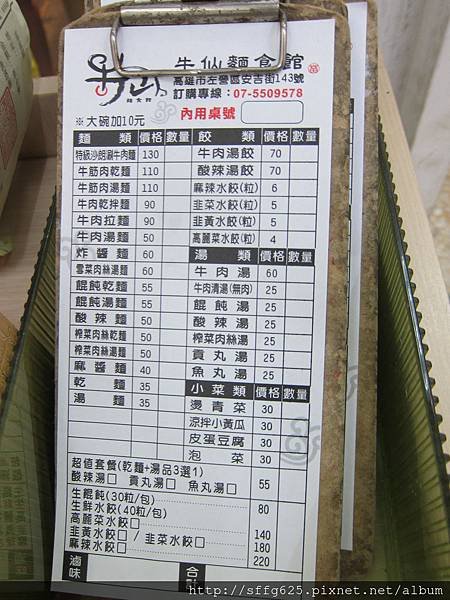 牛仙 麵食館
牛仙麵食館
高雄市左營區安吉街143號
訂購專線：07-5509578
※大碗加10元 內用桌號
麵類 價格 數量
特級沙朗涮牛肉麵 130
牛筋肉乾麵 110
牛筋肉湯麵 110
牛肉乾拌麵 90
牛肉拉麵 90
牛肉湯麵 50
炸醬麵 60
雪菜肉絲湯麵 60
餛飩乾麵 55
餛飩湯麵 55
酸辣麵 50
榨菜肉絲乾麵 50
榨菜肉絲湯麵 50
麻醬麵 40
乾麵 35
湯麵 35
餃類 價格 數量
牛肉湯餃 70
酸辣湯餃 70
麻辣水餃(粒) 6
韭菜水餃(粒) 5
韭黃水餃(粒) 5
高麗菜水餃(粒) 4
湯類 價格 數量
牛肉湯 60
牛肉清湯(無肉) 25
餛飩湯 25
酸辣湯 25
榨菜肉絲湯 25
貢丸湯 25
魚丸湯 25
小菜類 價格 數量
燙青菜 30
涼拌小黃瓜 30
皮蛋豆腐 30
泡菜 30
超值套餐(乾麵+湯品3選1)
酸辣湯□ 貢丸湯□ 魚丸湯□ 55
生餛飩(30粒/包) 80
生鮮水餃(40粒/包)
高麗菜水餃□ 140
韭黃水餃□ / 韭菜水餃□ 180
麻辣水餃□ 220
滷味 合計
http://sffg625.pixnet.net/album